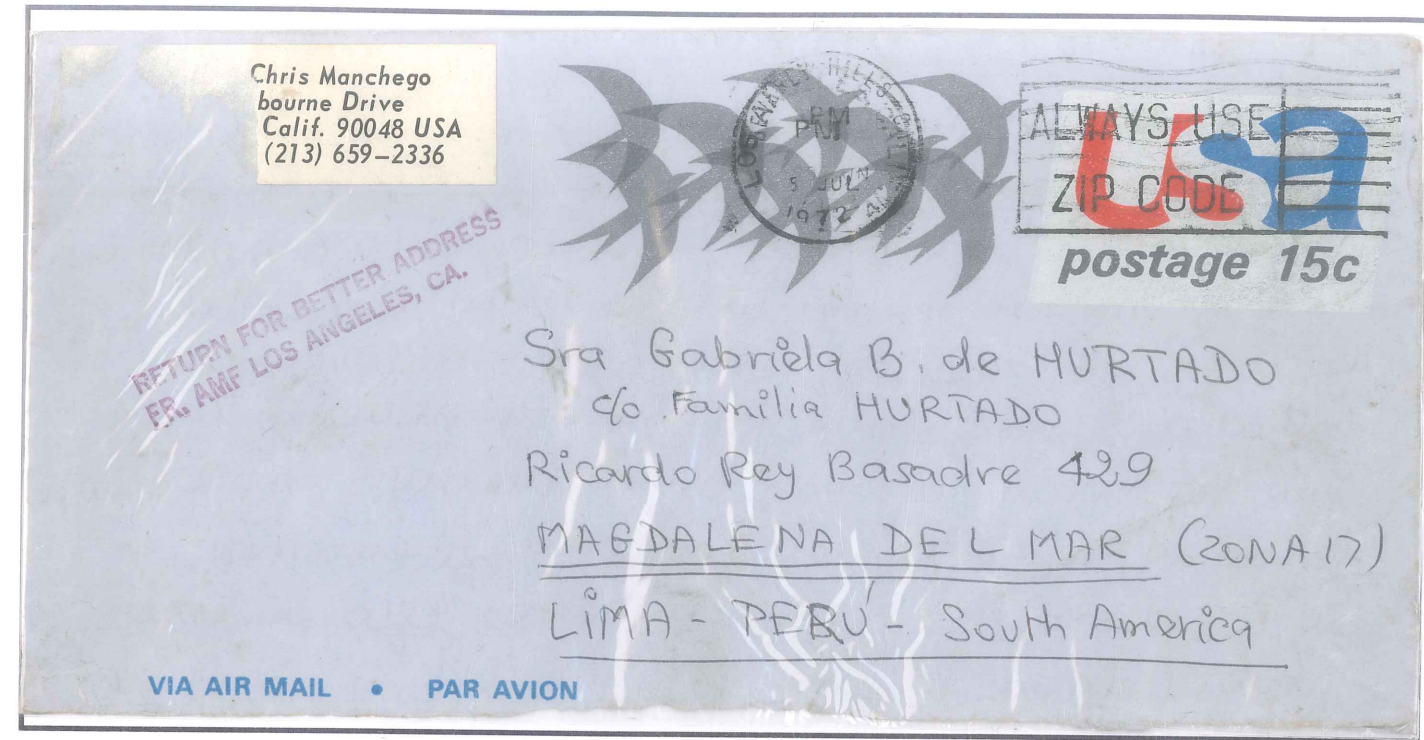 Chris Manchego
bourne Drive
Calif. 90048 USA
(213) 659-2336
PM
5 JUL
1972
ALWAYS USE
ZIP CODE
usa
postage 15c
RETURN FOR BETTER ADDRESS
FR. AMF LOS ANGELES, CA.
Sra Gabriela B. de HURTADO
c/o Familia HURTADO
Ricardo Rey Basadre 429
MAGDALENA DEL MAR (ZONA 17)
LIMA - PERÚ - South America
VIA AIR MAIL • PAR AVION